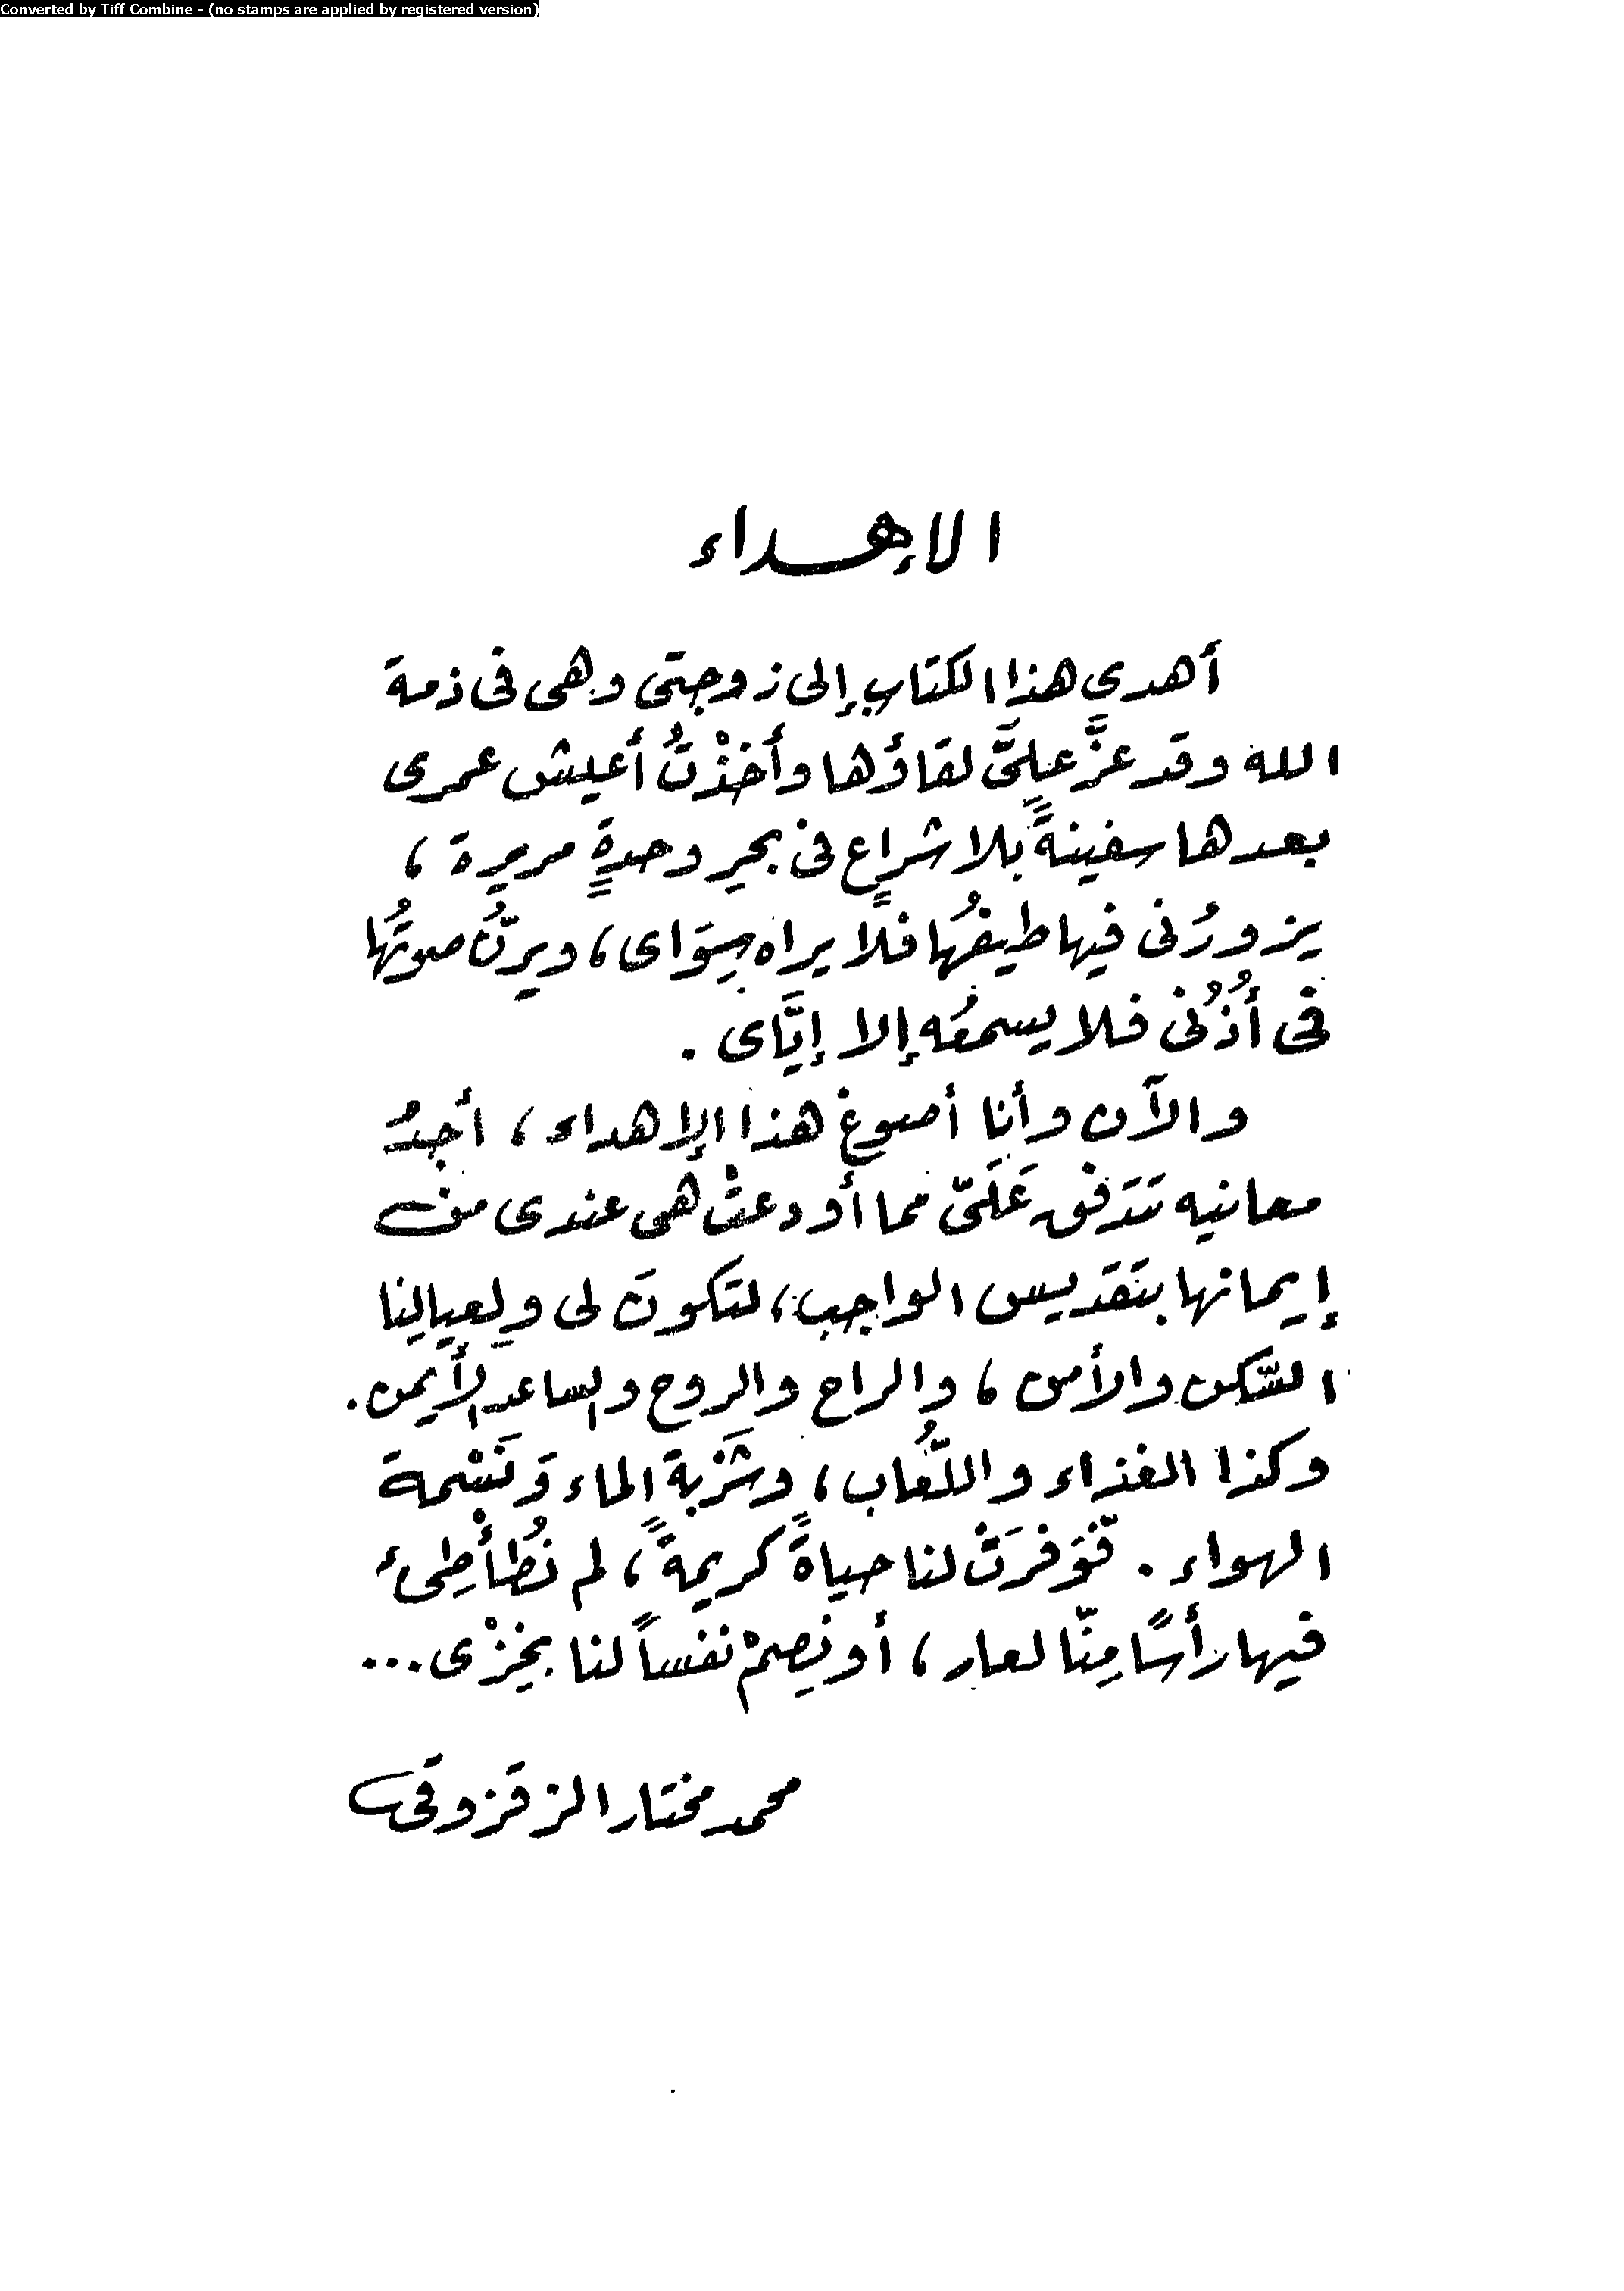 Converted by Tiff Combine - (no stamps are applied by registered version)
الإهداء
أهدى هذا الكتاب إلى زوجتى وهى فى ذمة
الله وقد عزَّ علىَّ لقاؤها وأخذْتُ أعيش عمرى
بعدها سفينةً بلا شراعٍ فى بحرِ وحدةٍ مريرة ،
يزورُنى فيها طيفُها فلا يراه سِوَاى ، ويرنّ صوتُها
فى أُذُنى فلا يسمعُه إلا إيَّاى .
والآن وأنا أصوغ هذا الإهداء ، أجدُ
معانيه تتدفق عَلَىّ مما أودعتْ هى عندى من
إيمانها بتقديس الواجب ، لتكونَ لى ولِعيالِنا
السّكن والأمن ، والراح والروح والساعد الأيمن .
وكذا الغذاء واللُّعاب ، وشَرْبة الماء وَنَسْمة
الهواء . فّتوفرَتْ لنا حياةً كريمةً ، لم نُطأْطِئ
فيها رأسًا مِنّا لعار ، أو نصِمْ نفساً لنا بخِزْى ...
محمد مختار الزقزوقى